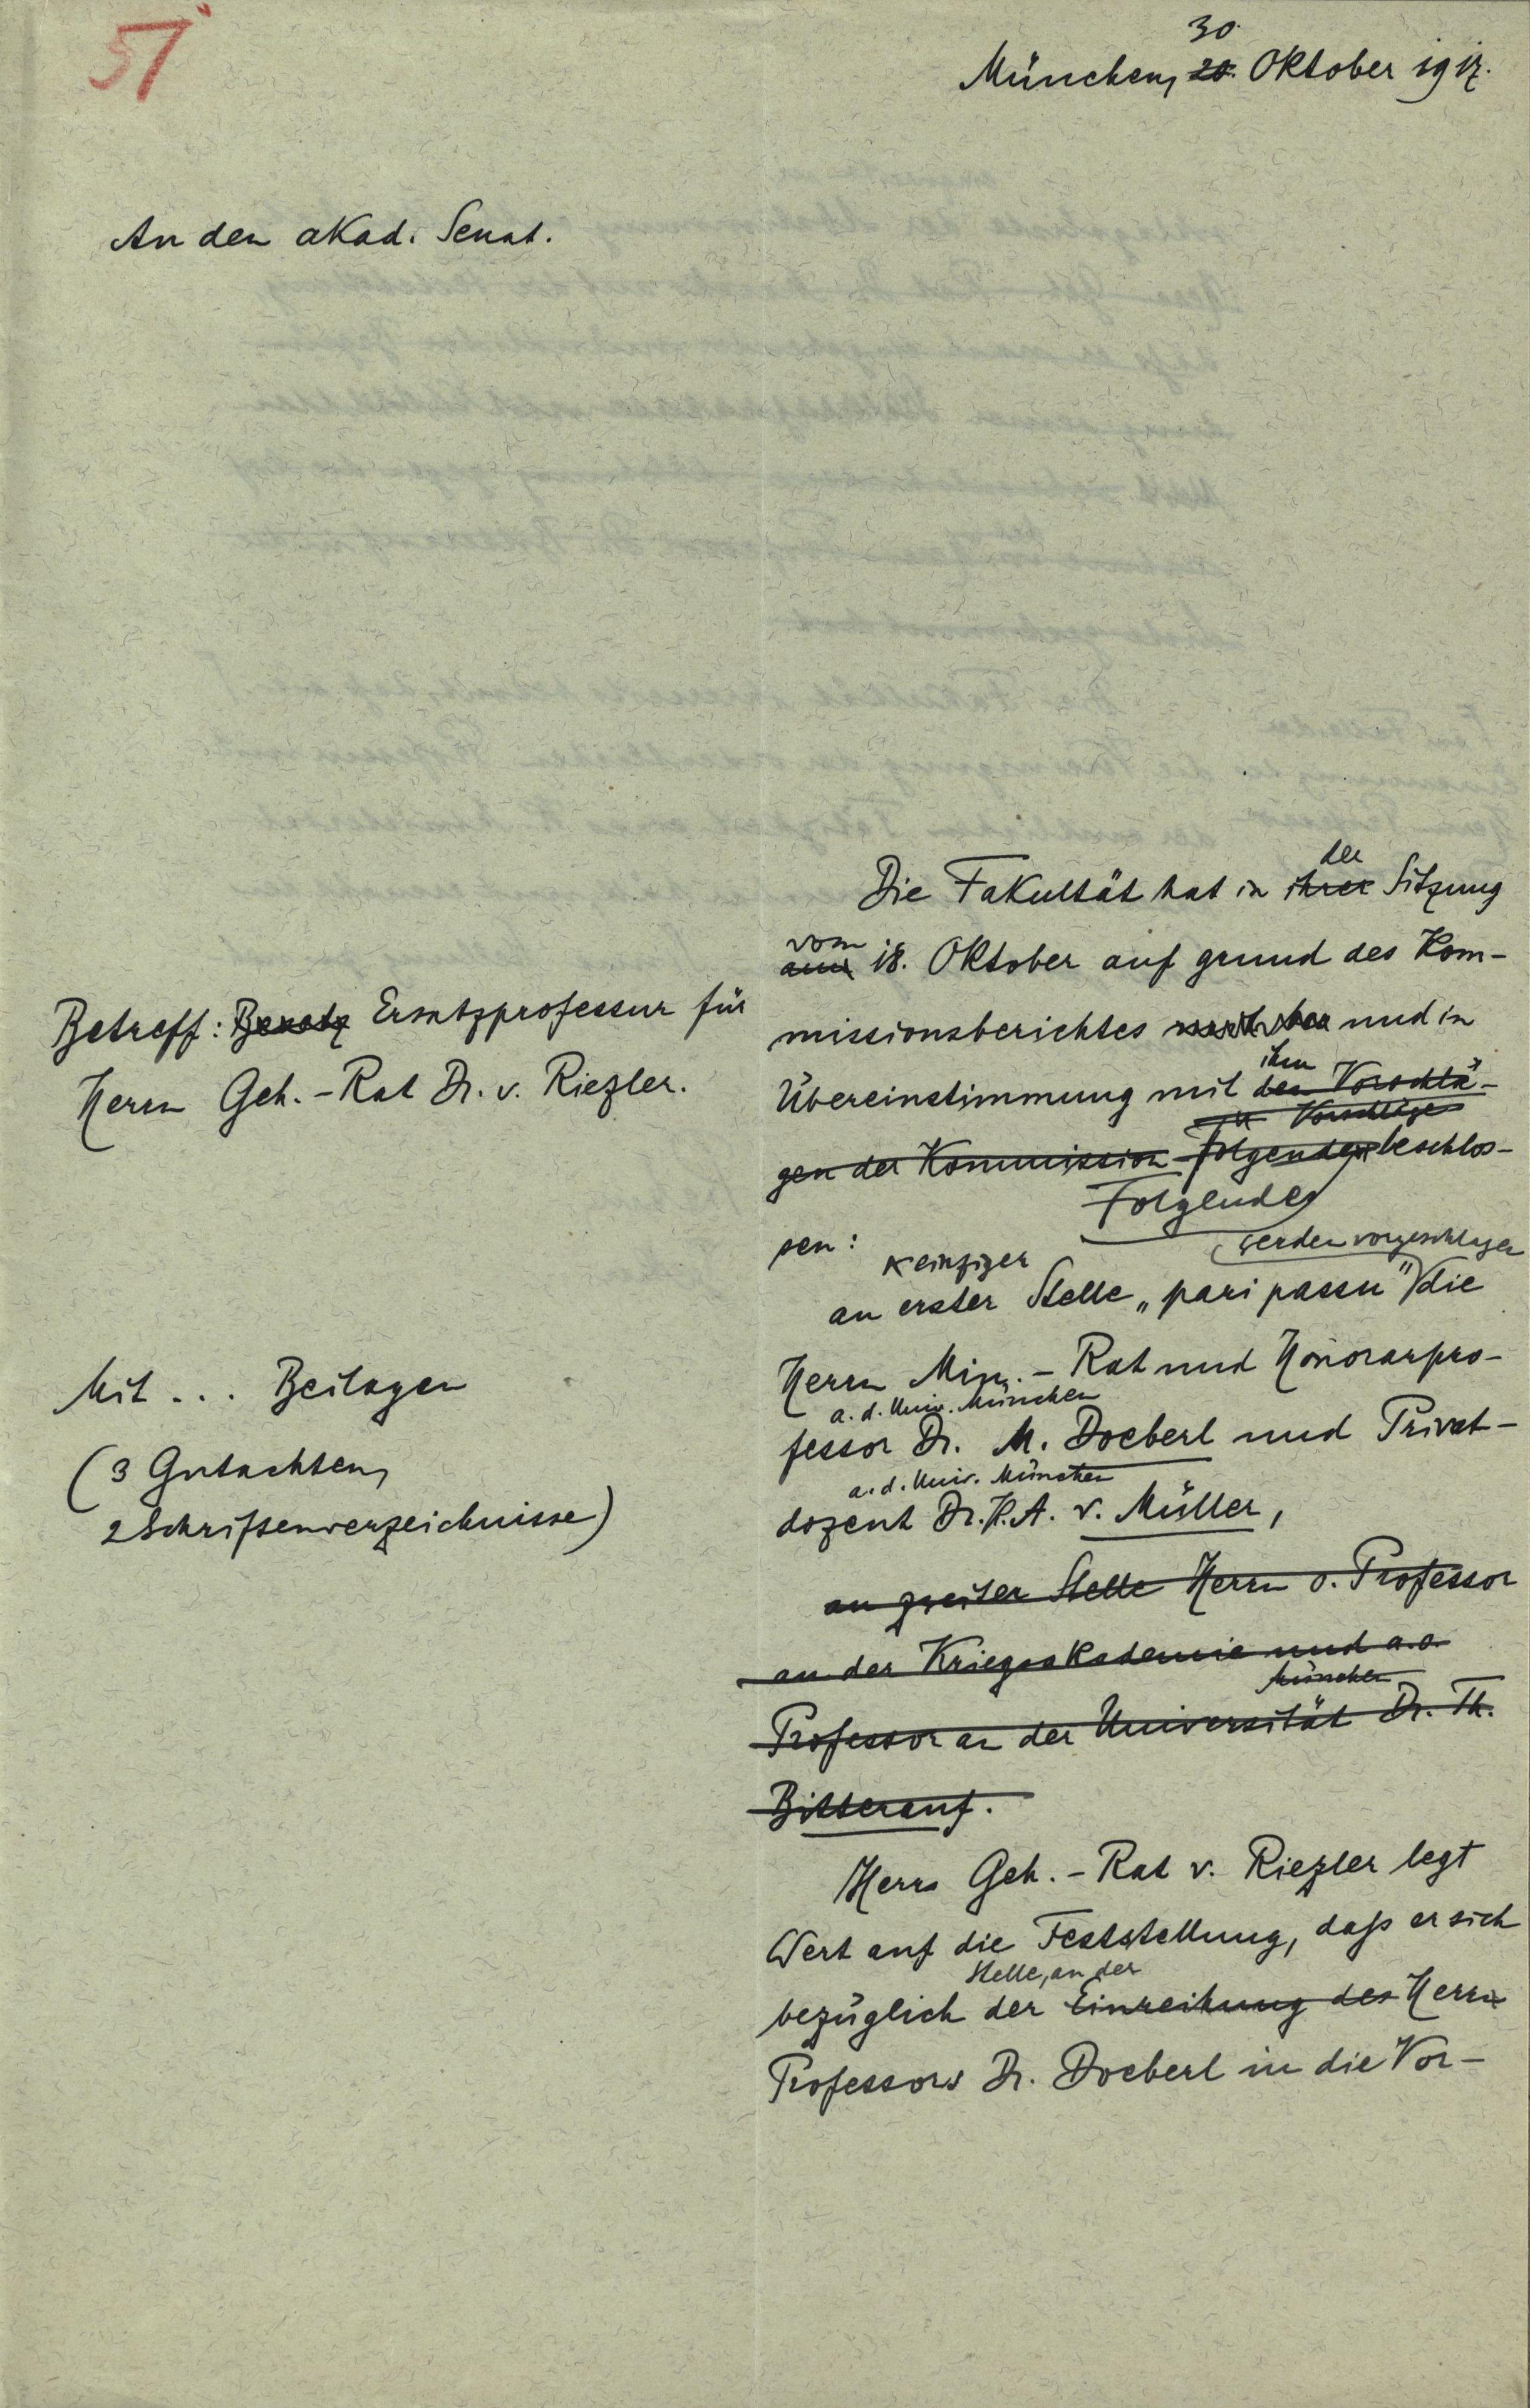 51
30.
München, 20. Oktober 1917.
An den akad. Senat.
Betreff: Ersatzprofessur für
Herrn Geh.-Rat Dr. v. Riezler.
Mit ... Beilagen
(3 Gutachten,
2 Schriftenverzeichnisse)
der
Die Fakultät hat in ihrer Sitzung
vom
am 18. Oktober auf grund des Kom-
missionsberichtes und in
ihm
Übereinstimmung mit den Vorschlä-
Vorschläge
gen der Kommission Folgendes beschlos-
Folgendes
sen:
einziger
werden vorgeschlagen
an erster Stelle „pari passu" die
Herrn Min.-Rat und Honorarpro-
a. d. Univ. München
fessor Dr. M. Doeberl und Privat-
a. d. Univ. München
dozent Dr. K. A. v. Müller,
an zweiter Stelle Herrn o. Professor
an der Kriegsakademie und a.o.
München
Professor an der Universität Dr. Th.
Bitterauf.
Herr Geh.-Rat v. Riezler legt
Wert auf die Feststellung, daß er sich
Stelle, an der
bezüglich der Einreihung des Herrn
Professors Dr. Doeberl in die Vor-